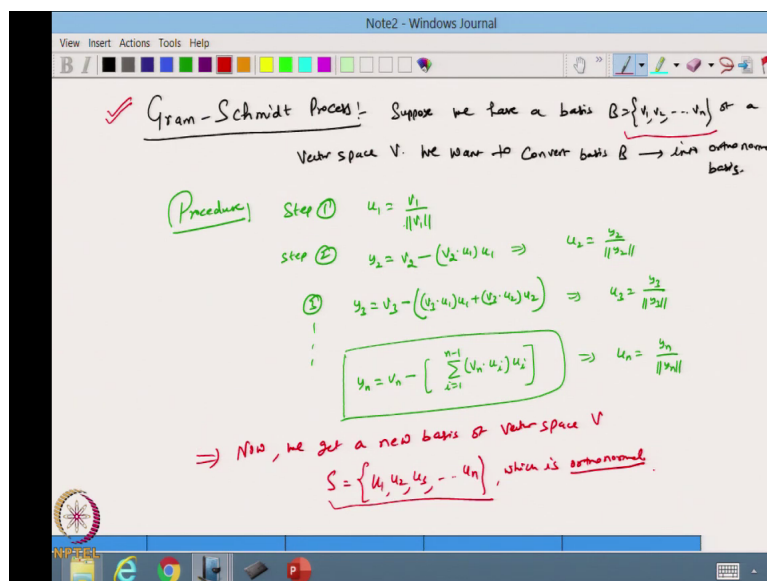 Note2 - Windows Journal
View Insert Actions Tools Help
B I
Gram-Schmidt Process:- Suppose we have a basis B={v₁, v₂, ... vₙ} of a
Vector space V. We want to Convert basis B → into orthonormal
basis.
Procedure: Step ① u₁ = v₁/||v₁||
Step ② y₂ = v₂ - (v₂·u₁)u₁ ⇒ u₂ = y₂/||y₂||
③ y₃ = v₃ - ((v₃·u₁)u₁ + (v₃·u₂)u₂) ⇒ u₃ = y₃/||y₃||
yₙ = vₙ - [ ∑_{i=1}^{n-1} (vₙ·uᵢ)uᵢ ] ⇒ uₙ = yₙ/||yₙ||
⇒ Now, we get a new basis of vector space V
S = {u₁, u₂, u₃, ... uₙ}, which is orthonormal.
NPTEL